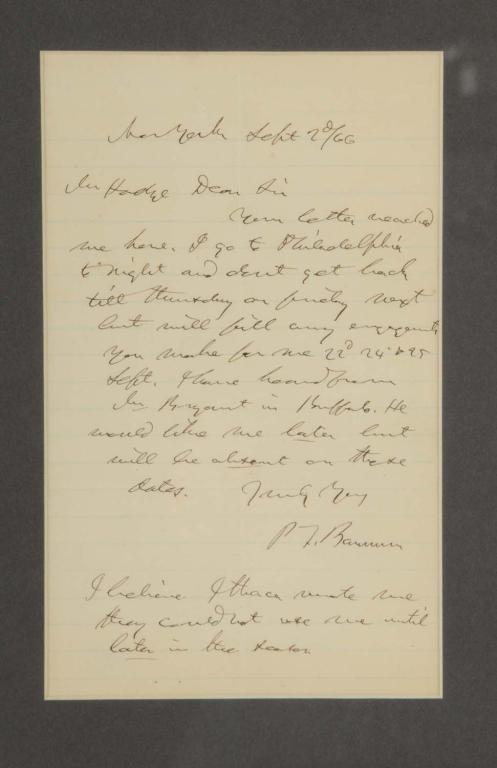 New York Sept 2d/66
Mr Hodge Dear Sir
Your letter reached
me here. I go to Philadelphia
to night and dont get back
till Thursday or friday next
but will fill any engagements
you make for me 22d 24 & 25
Sept. I have heard from
Mr Bryant in Buffalo. He
would like me later but
will be absent on those
dates. Truly Yours
P T. Barnum
I believe Ithaca wrote me
they could not use me until
later in the season